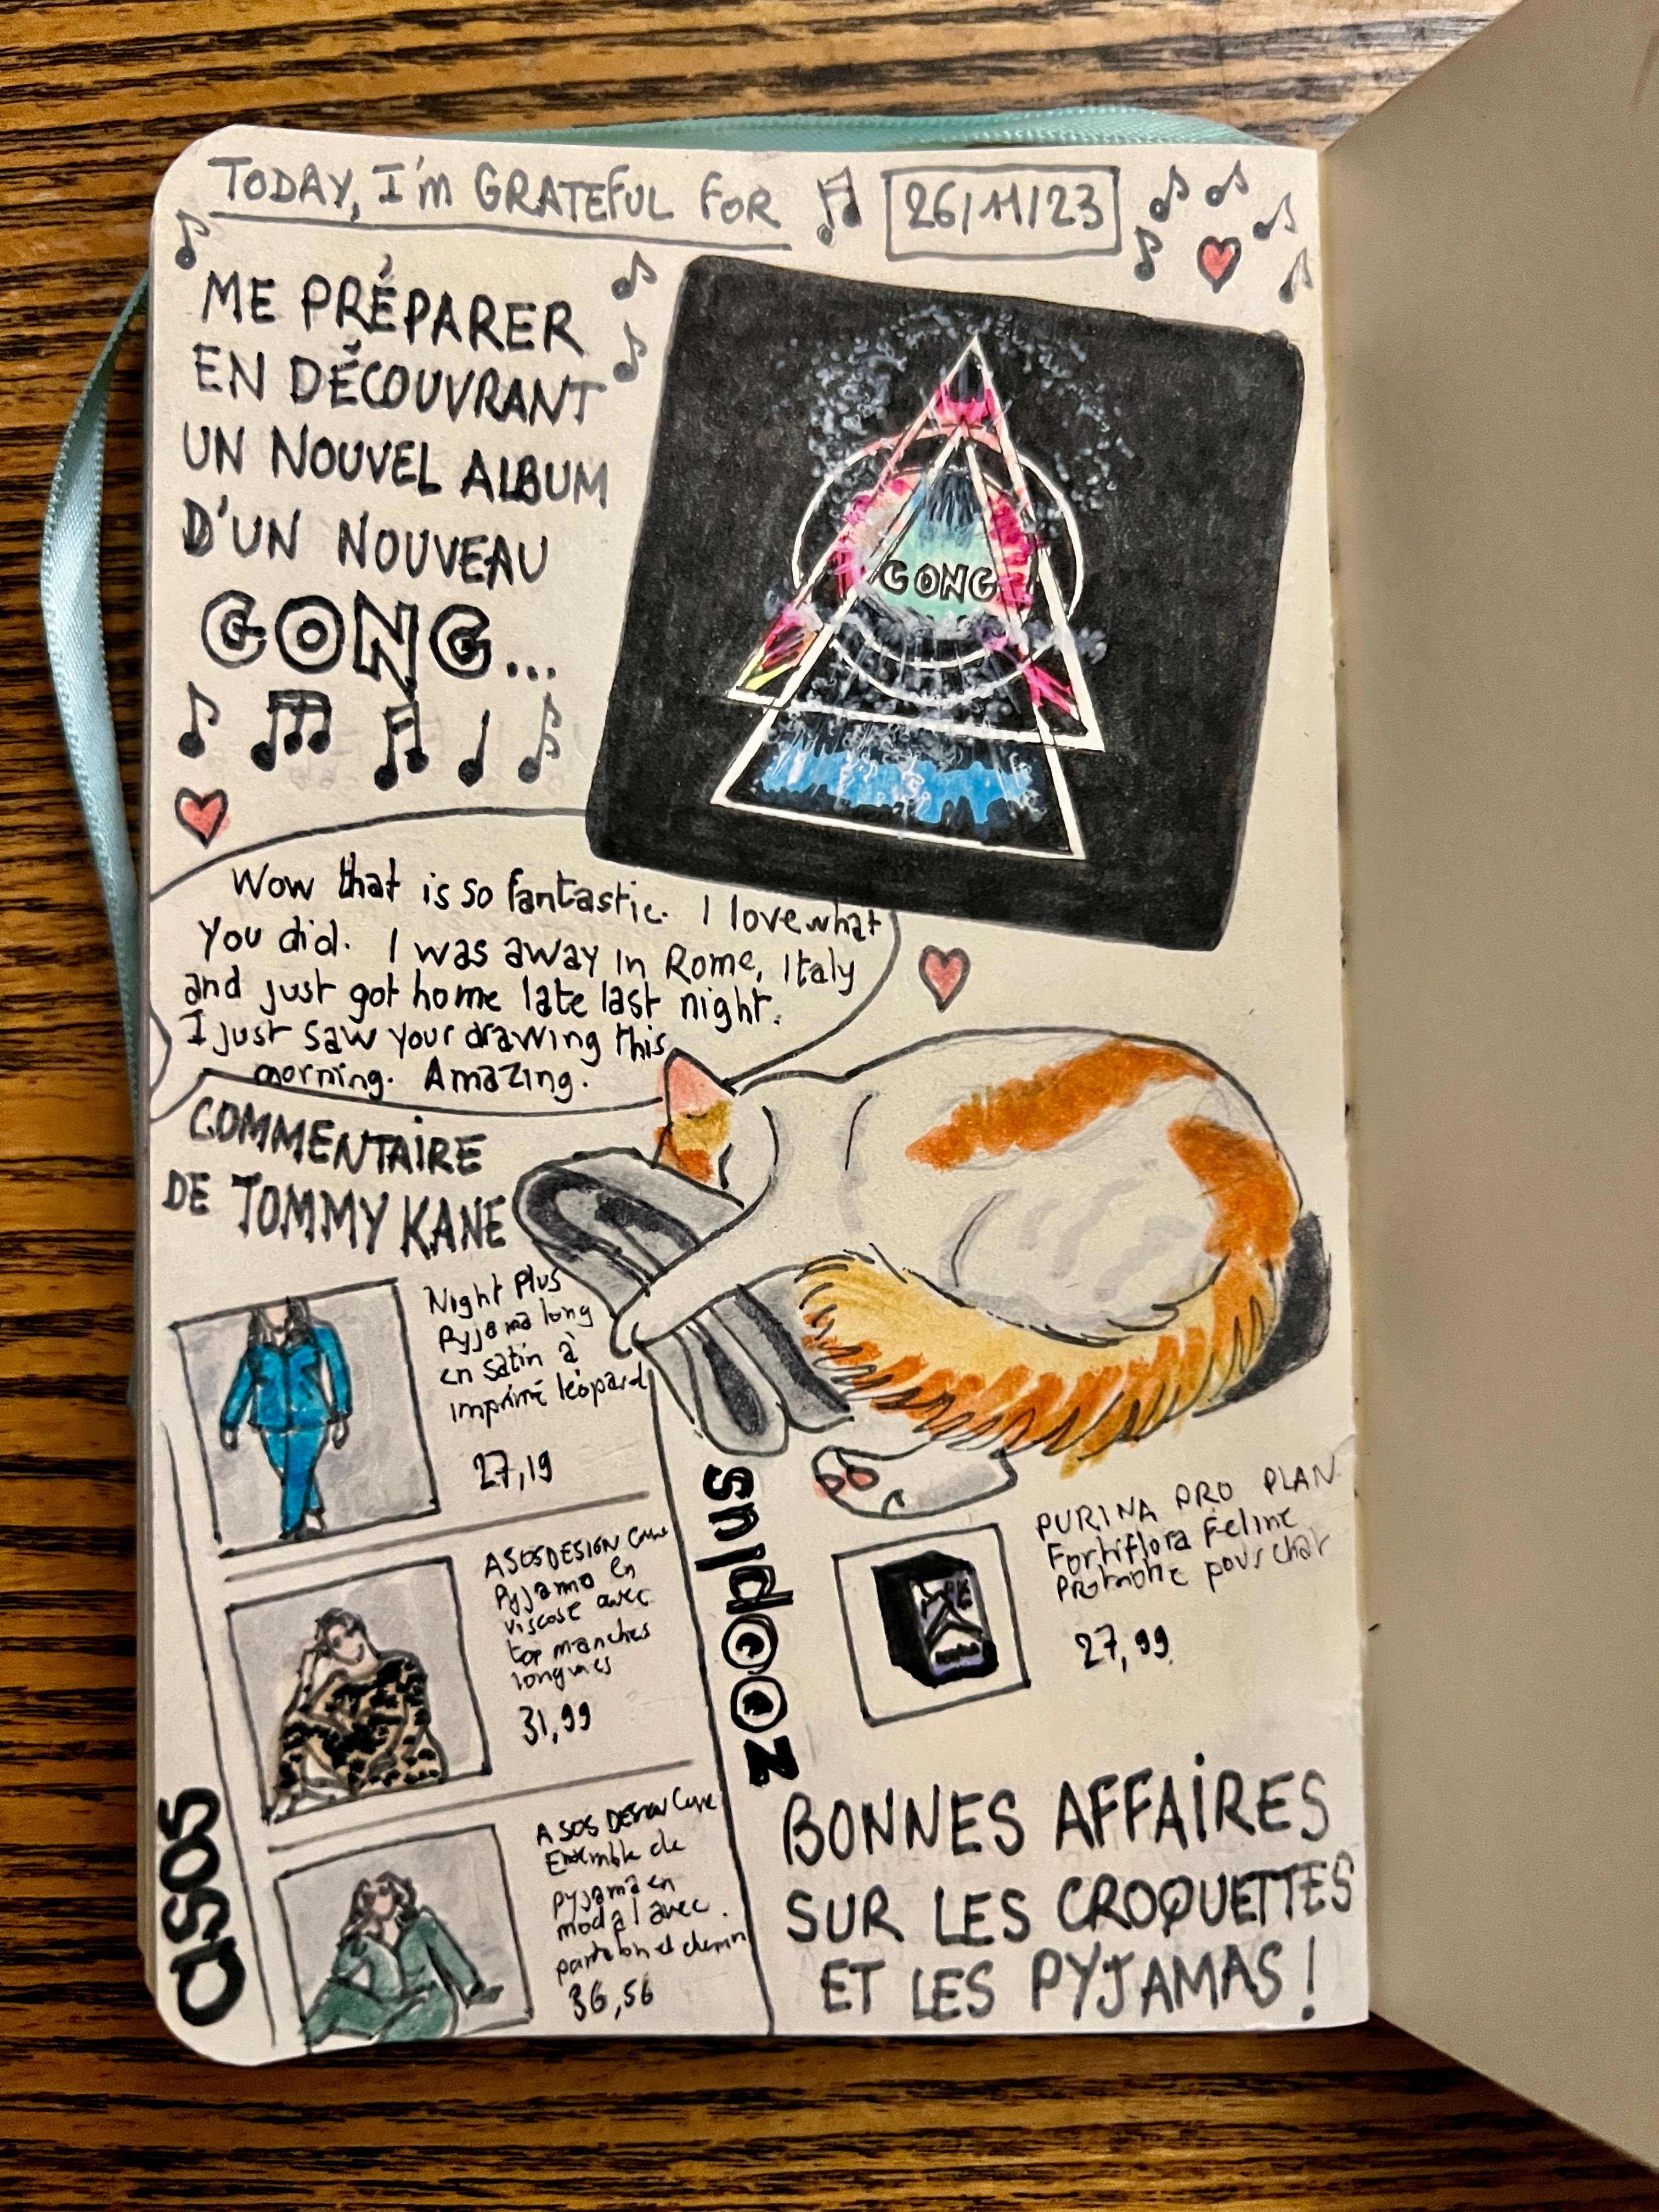 TODAY, I'M GRATEFUL FOR
26/11/23
ME PRÉPARER
EN DÉCOUVRANT
UN NOUVEL ALBUM
D'UN NOUVEAU
GONG...
GONG
Wow that is so fantastic. I love what
you did. I was away in Rome, Italy
and just got home late last night.
I just saw your drawing this
morning. Amazing.
COMMENTAIRE
DE TOMMY KANE
asos
Night Plus
Pyjama long
en satin à
imprimé léopard
27,19
ASOS DESIGN
Pyjama en
viscose avec
top manches
longues
31,99
ASOS DESIGN Curve
Ensemble de
pyjama en
modal avec
pantalon et
36,56
zooplus
PURINA PRO PLAN
Fortiflora Feline
pour chat
27,99
BONNES AFFAIRES
SUR LES CROQUETTES
ET LES PYJAMAS !